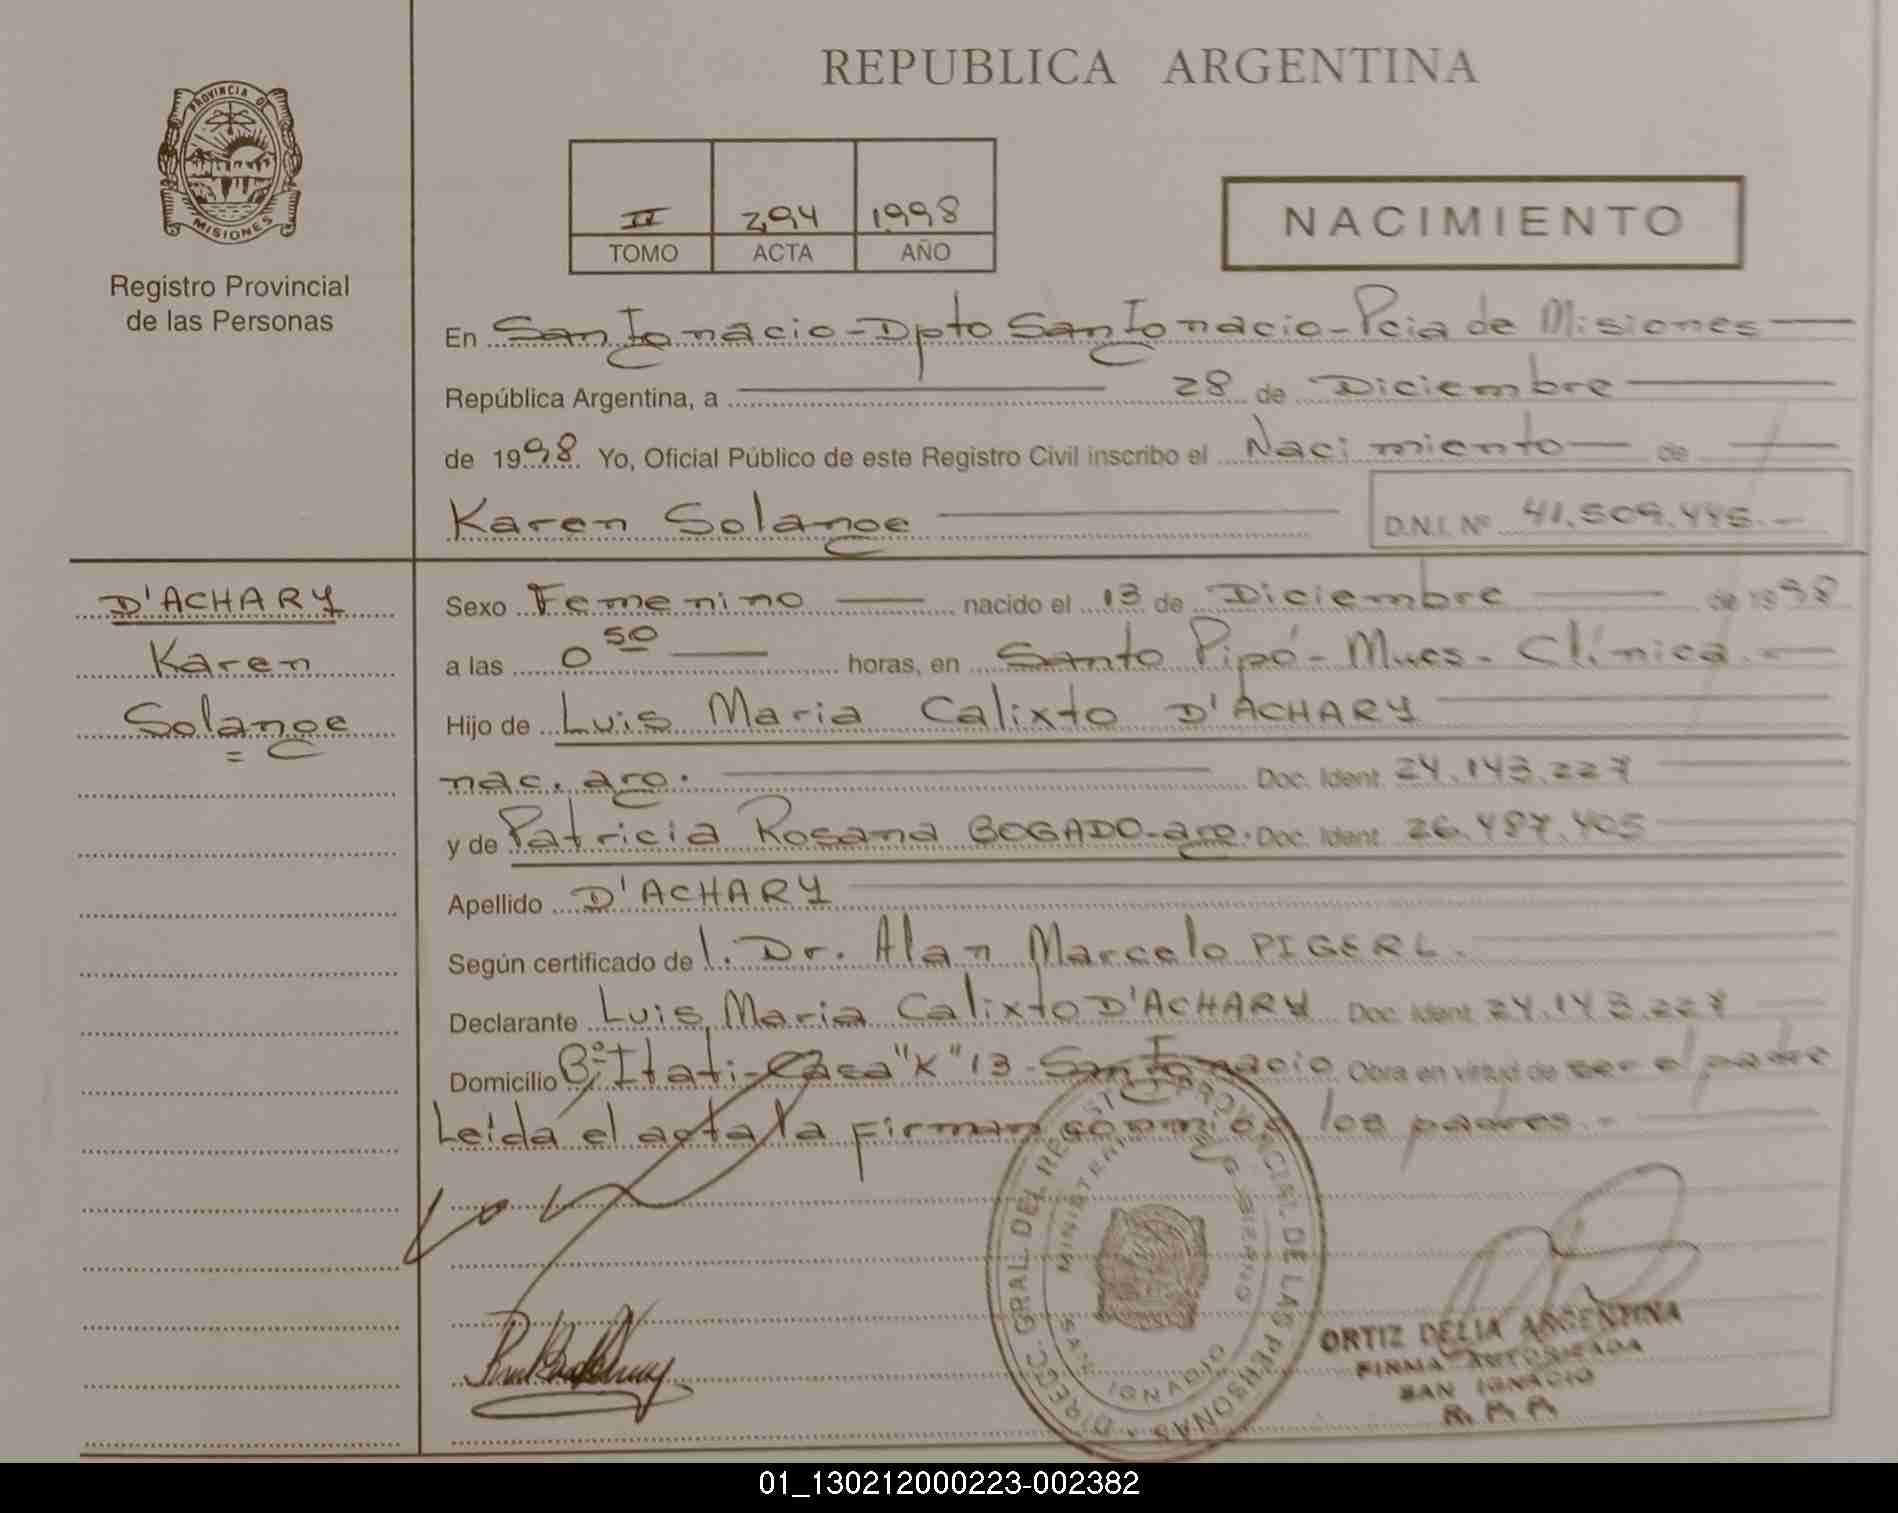 REPUBLICA ARGENTINA
PROVINCIA DE
MISIONES
Registro Provincial
de las Personas
II 294 1998
TOMO ACTA AÑO
NACIMIENTO
En San Ignacio - Dpto San Ignacio - Pcia de Misiones
República Argentina, a 28 de Diciembre
de 1998 Yo, Oficial Público de este Registro Civil inscribo el Nacimiento de
Karen Solange D.N.I. Nº 41.509.445.-
D'ACHARY
Karen
Solange
Sexo Femenino nacido el 13 de Diciembre de 1998
a las 0 50 horas, en Santo Pipó - Mnes - Clínica.-
Hijo de Luis Maria Calixto D'ACHARY
nac. arg. Doc. Ident. 24.143.227
y de Patricia Rosana BOGADO - arg. Doc. Ident. 26.487.405
Apellido D'ACHARY
Según certificado de l. Dr. Alan Marcelo PIGERL.
Declarante Luis Maria Calixto D'ACHARY Doc. Ident. 24.143.227
Domicilio Bº Itati - Casa "K" 13 - San Ignacio Obra en virtud de ser el padre
Leída el acta la firman conmigo los padres.-
DIREC. GRAL DEL REGISTRO PROVINCIAL DE LAS PERSONAS
MINISTERIO DE GOBIERNO
SAN IGNACIO
ORTIZ DELIA ARGENTINA
FIRMA AUTORIZADA
SAN IGNACIO
01_130212000223-002382